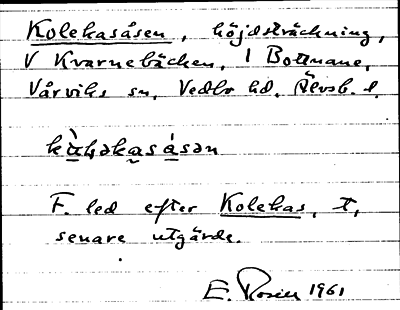 Kolekasåsen, höjdsträckning,
V Kvarnebäcken, I Bottnane,
Vårviks sn, Vedbo hd. Älvsb. l.
F. led efter Kolekas, t,
senare utgärde.
E. Rosén 1961